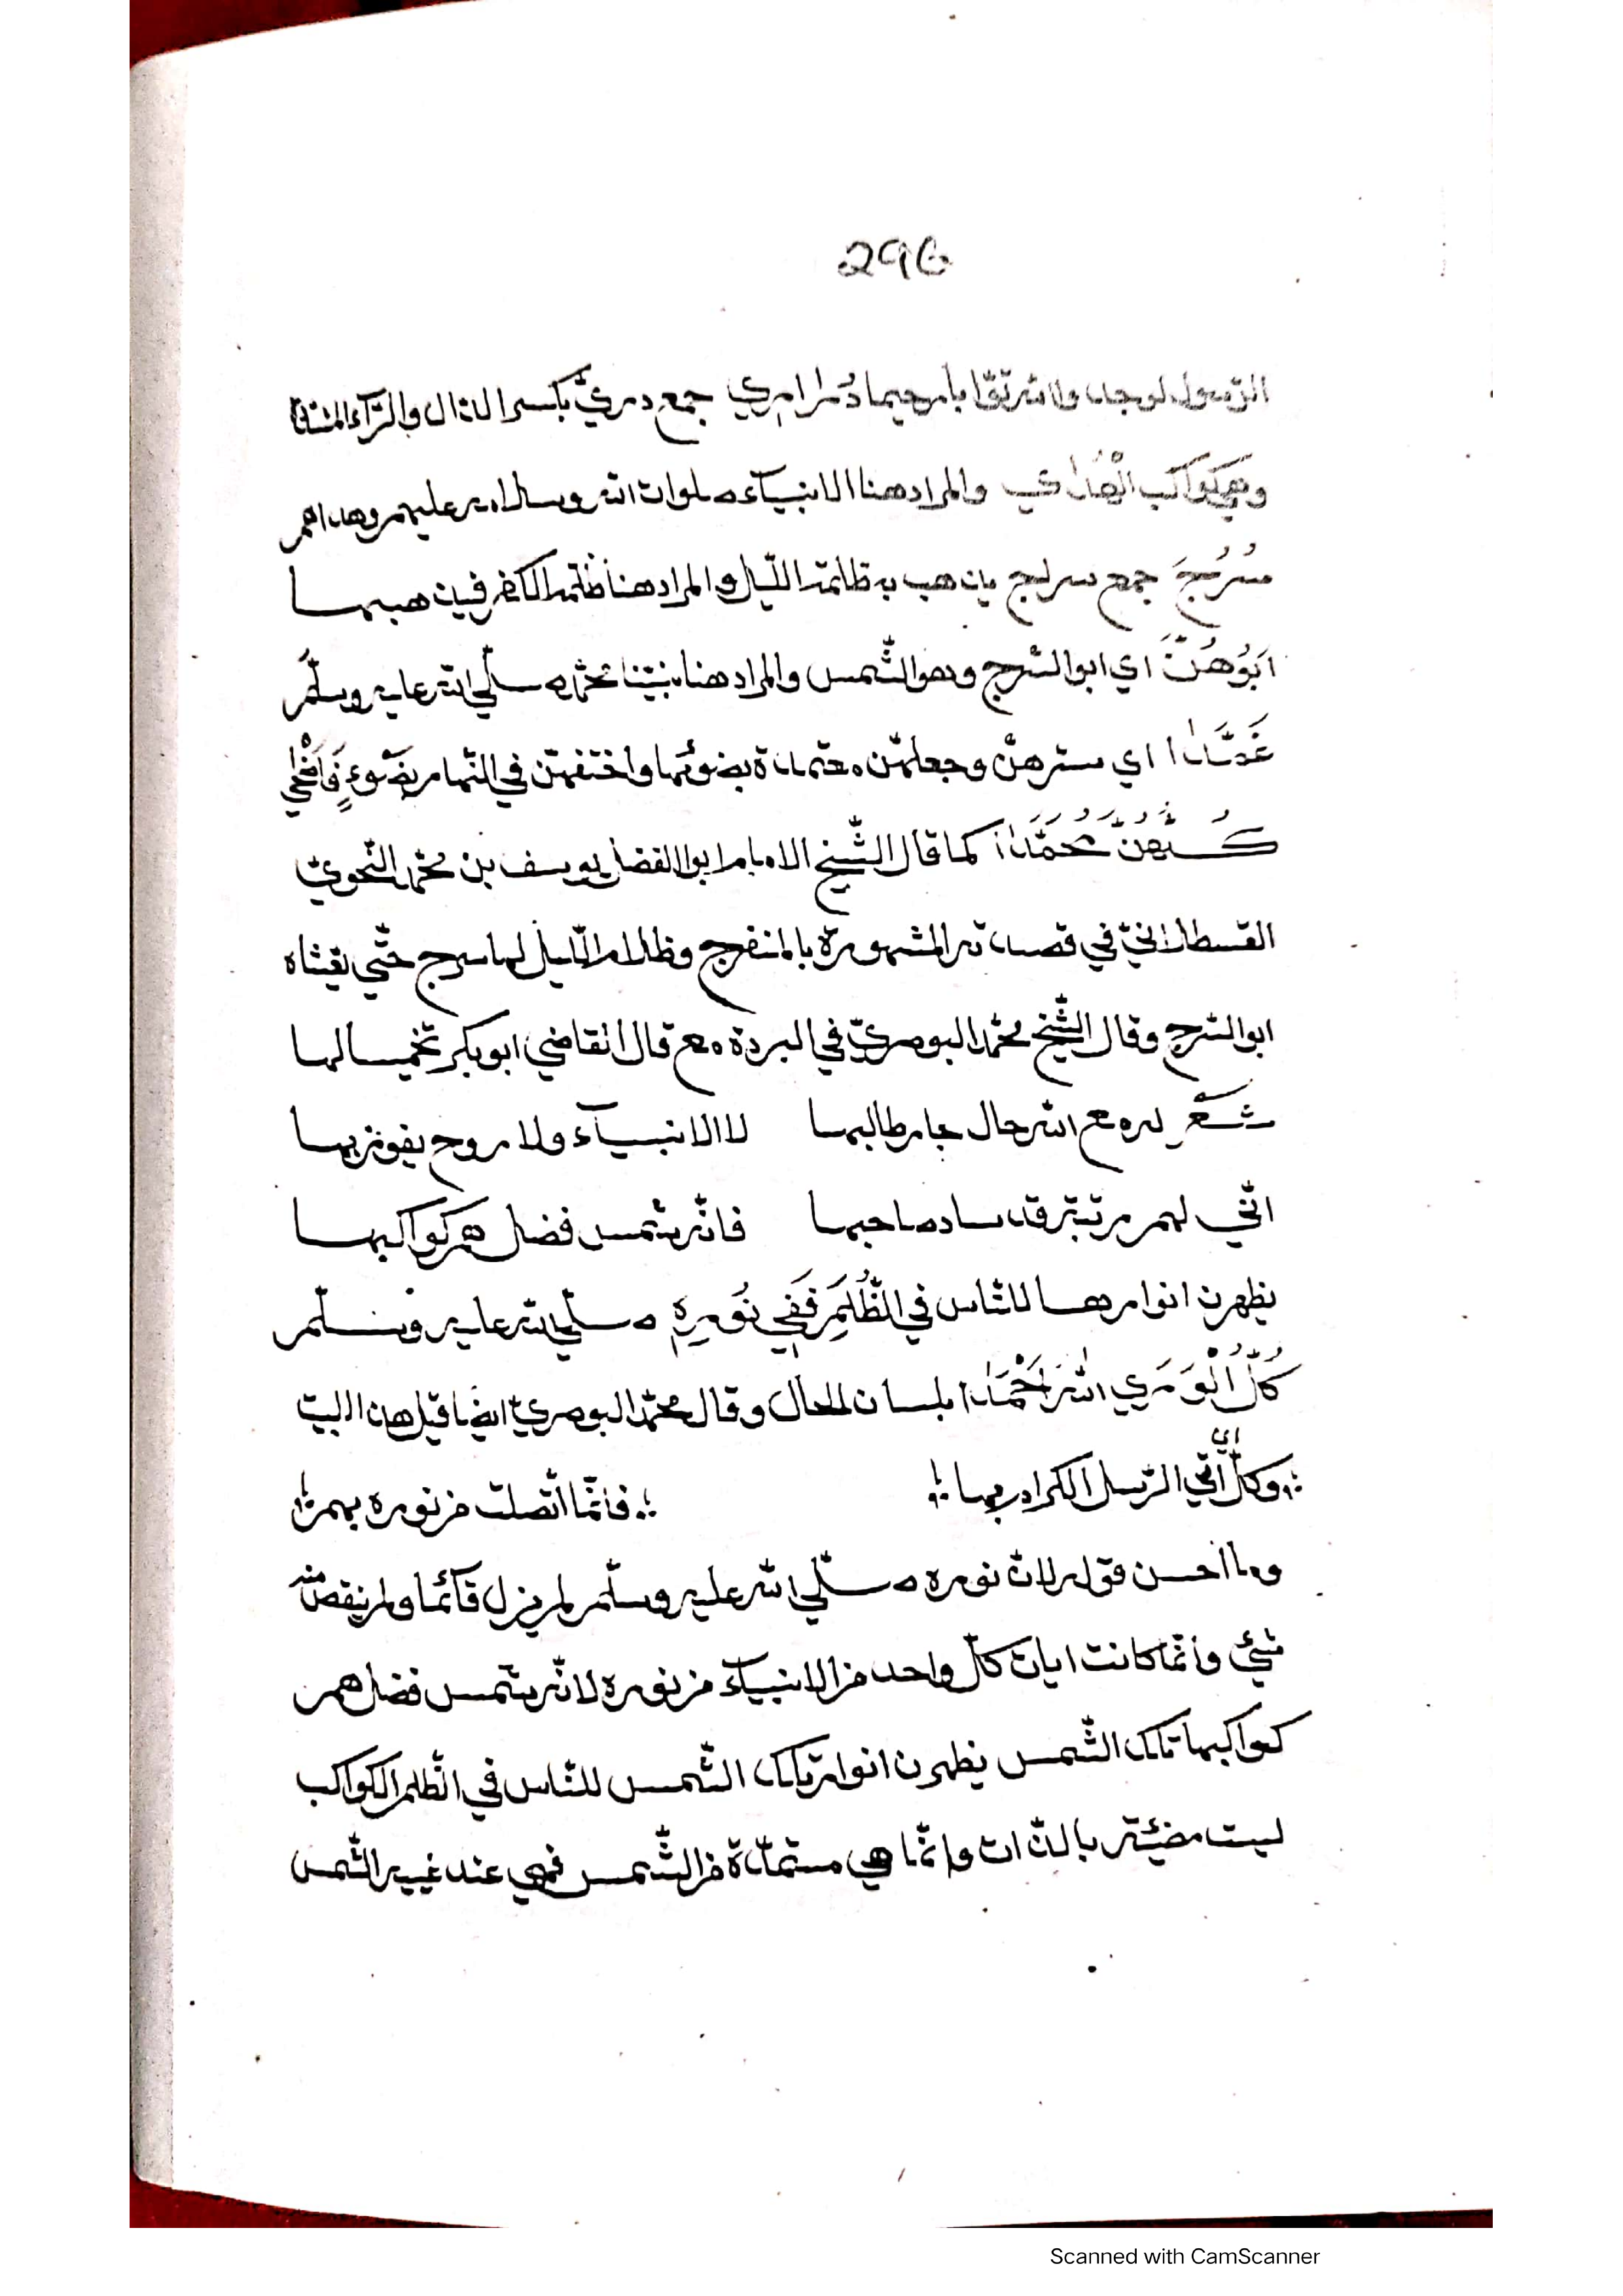 296
الرسول لوجدوا الله توّابا رحيما دراري جمع دريّ بكسر الدال والرّآء المشدّدة
وهي كواكب الهدٰي والمراد هنا الانبيآء صلوات الله وسلامه عليهم وهداهم
سُرُجُ جمع سراج يذهب به ظلمة اللّيل والمراد هنا ظلمة الكفر فيذهبها
اَبُوهُنَّ اي ابو السّرج وهو الشّمس والمراد هنا نبيّنا محمّد صلّي الله عليه وسلّم
غَمَّدَا اي سترهنّ وجعلهنّ بضوئها واختفتهن في النّهار بضَوْءٍ فَاَضْحٰي
كُلُّهُنَّ مُحَمَّدَا كما قال الشّيخ الامام ابو الفضل يوسف بن محمّد النّحويّ
القسطلانيّ في قصيدته المشهورة بالمنفرج وظلام اللّيل لها سرج حتّي يغشاه
ابو السّرج وقال الشّيخ محمّد البوصريّ في البردة مع قال القاضي ابوبكر تخميسا لها
شعر له مع الله حال جار طالبها لا الانبيآء ولا روح يفوز بها
انّي لهم رتبة قد ساد صاحبها فانّه شمس فضل هم كواكبها
يظهرن انوارها للنّاس في الظُّلَمِ فَفِي نُورِهِ صلّي الله عليه وسلّم
كُلُّ الْوَرَي اللهَ اَحْمَدَا بلسان الحال وقال محمّد البوصريّ ايضا قبل هذا البيت
وكلّ اي اتي الرّسل الكرام بها فانّما اتّصلت من نوره بهم
وما احسن قوله لان نوره صلّي الله عليه وسلّم لم يزل قآئما ولم ينقص منه
شيئ وانّما كانت ايات كلّ واحد من الانبيآء من نوره لانّه شمس فضل هم
كواكبها تلك الشّمس يظهرن انوار تلك الشّمس للنّاس في الظلم الكواكب
ليست مضيئة بالذّات وانّما هي مستمدّة من الشّمس فهي عند غيبة الشّمس
Scanned with CamScanner